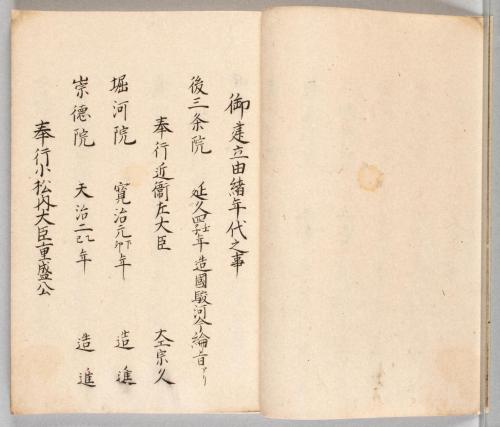 御建立由緒年代之事
後三条院 延久四壬子年 造國駿河今綸旨アリ
奉行近衞左大臣 大工宗久
堀河院 寛治元丁卯年 造進
崇徳院 天治二乙巳年 造進
奉行小松内大臣重盛公